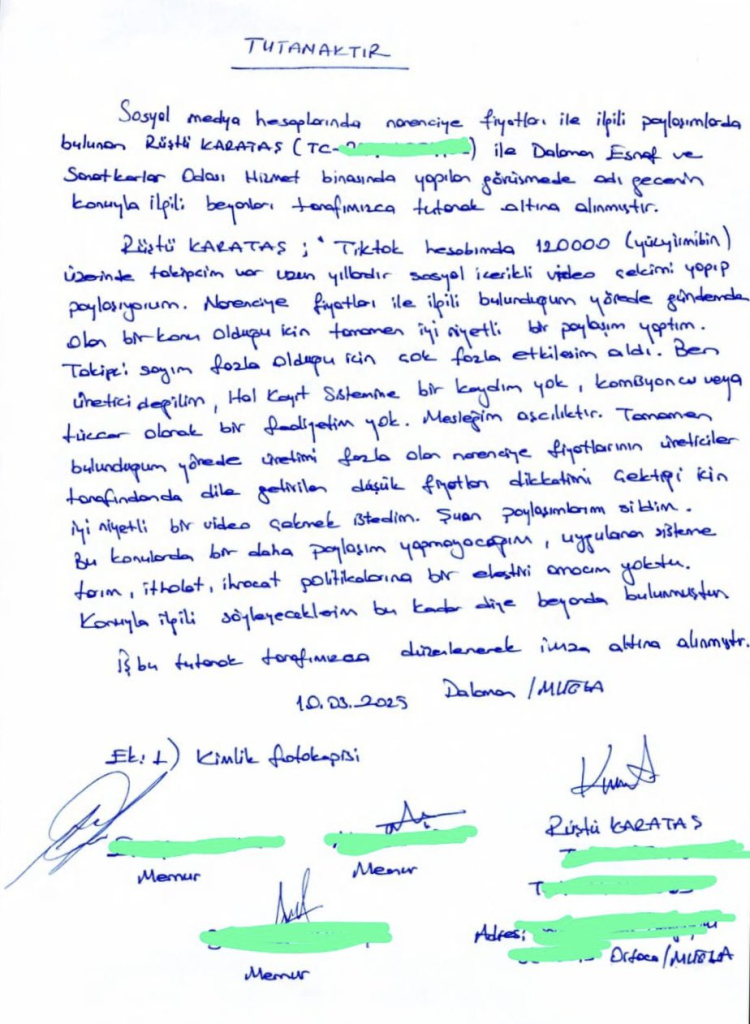 TUTANAKTIR
Sosyal medya hesaplarında narenciye fiyatları ile ilgili paylaşımlarda
bulunan Rüştü KARATAŞ (TC- ) ile Dalaman Esnaf ve
Sanatkarlar Odası Hizmet binasında yapılan görüşmede adı geçenin
konuyla ilgili beyanları tarafımızca tutanak altına alınmıştır.
Rüştü KARATAŞ ; " Tiktok hesabımda 120000 (yüzyirmibin)
üzerinde takipçim var uzun yıllardır sosyal içerikli video çekimi yapıp
paylaşıyorum. Narenciye fiyatları ile ilgili bulunduğum yörede gündemde
olan bir konu olduğu için tamamen iyi niyetli bir paylaşım yaptım.
Takipçi sayım fazla olduğu için çok fazla etkileşim aldı. Ben
üretici değilim, Hal Kayıt Sistemine bir kaydım yok, komisyoncu veya
tüccar olarak bir faaliyetim yok. Mesleğim aşçılıktır. Tamamen
bulunduğum yörede üretimi fazla olan narenciye fiyatlarının üreticiler
tarafındanda dile getirilen düşük fiyatları dikkatimi çektiği için
iyi niyetli bir video çekmek istedim. Şuan paylaşımlarım sildim.
Bu konularda bir daha paylaşım yapmayacağım, uygulanan sisteme
tarım, ithalat, ihracat politikalarına bir eleştiri amacım yoktu.
Konuyla ilgili söyleyeceklerim bu kadar diye beyanda bulunmuştur.
İş bu tutanak tarafımızca düzenlenerek imza altına alınmıştır.
10.03.2025 Dalaman /MUĞLA
Ek: 1) Kimlik fotokopisi
Rüştü KARATAŞ
Memur
Memur
Memur
Adres:
Ortaca/MUĞLA